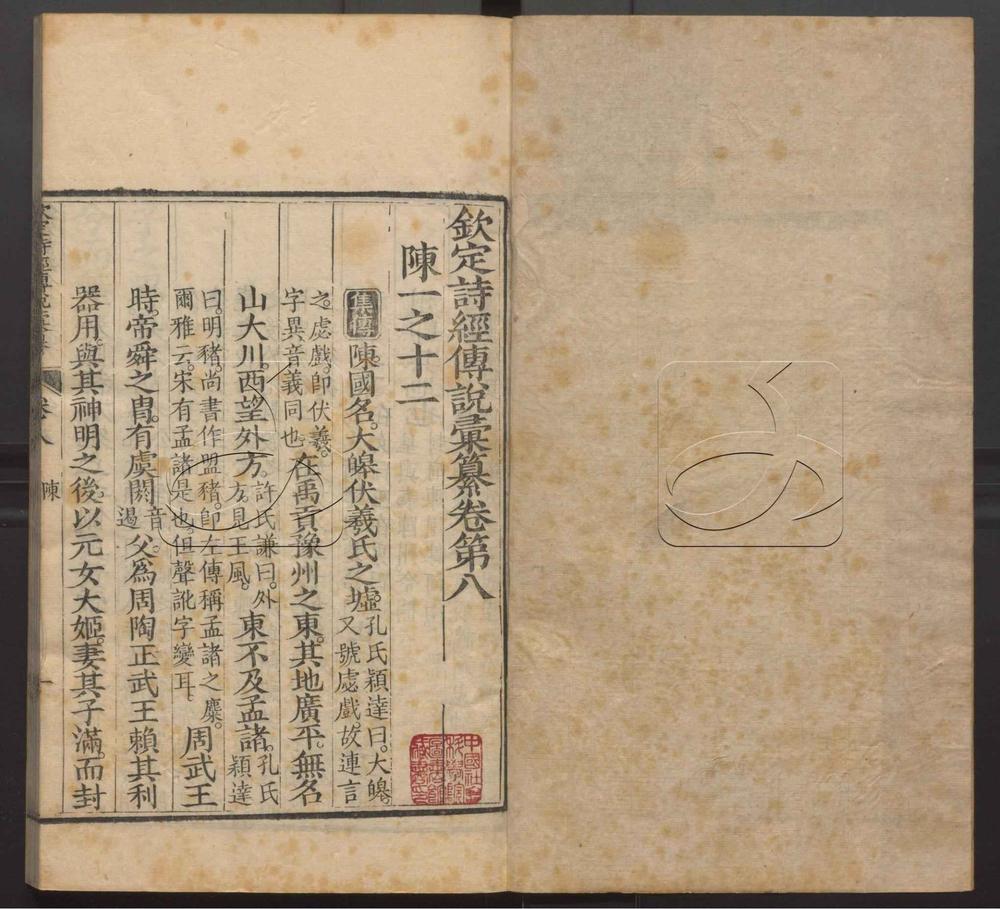 欽定詩經傳說彙纂卷第八
陳一之十二
集傳陳國名。大皥伏羲氏之墟。孔氏穎達曰。大皥。又號虙戲。故連言
之。虙戲。卽伏羲。字異音義同也在禹貢豫州之東。其地廣平。無名
山大川。西望外方。許氏謙曰。外方。見王風。東不及孟諸。孔氏穎達
曰。明豬。尚書作盟豬。卽左傳稱孟諸之麋。爾雅云。宋有孟諸是也。但聲訛字變耳。周武王
時。帝舜之冑。有虞閼音遏父。爲周陶正武王賴其利
器用。與其神明之後。以元女大姬。妻其子滿。而封
欽定詩經傳說彙纂 卷八 陳 一
中國社會科學院圖書館藏書